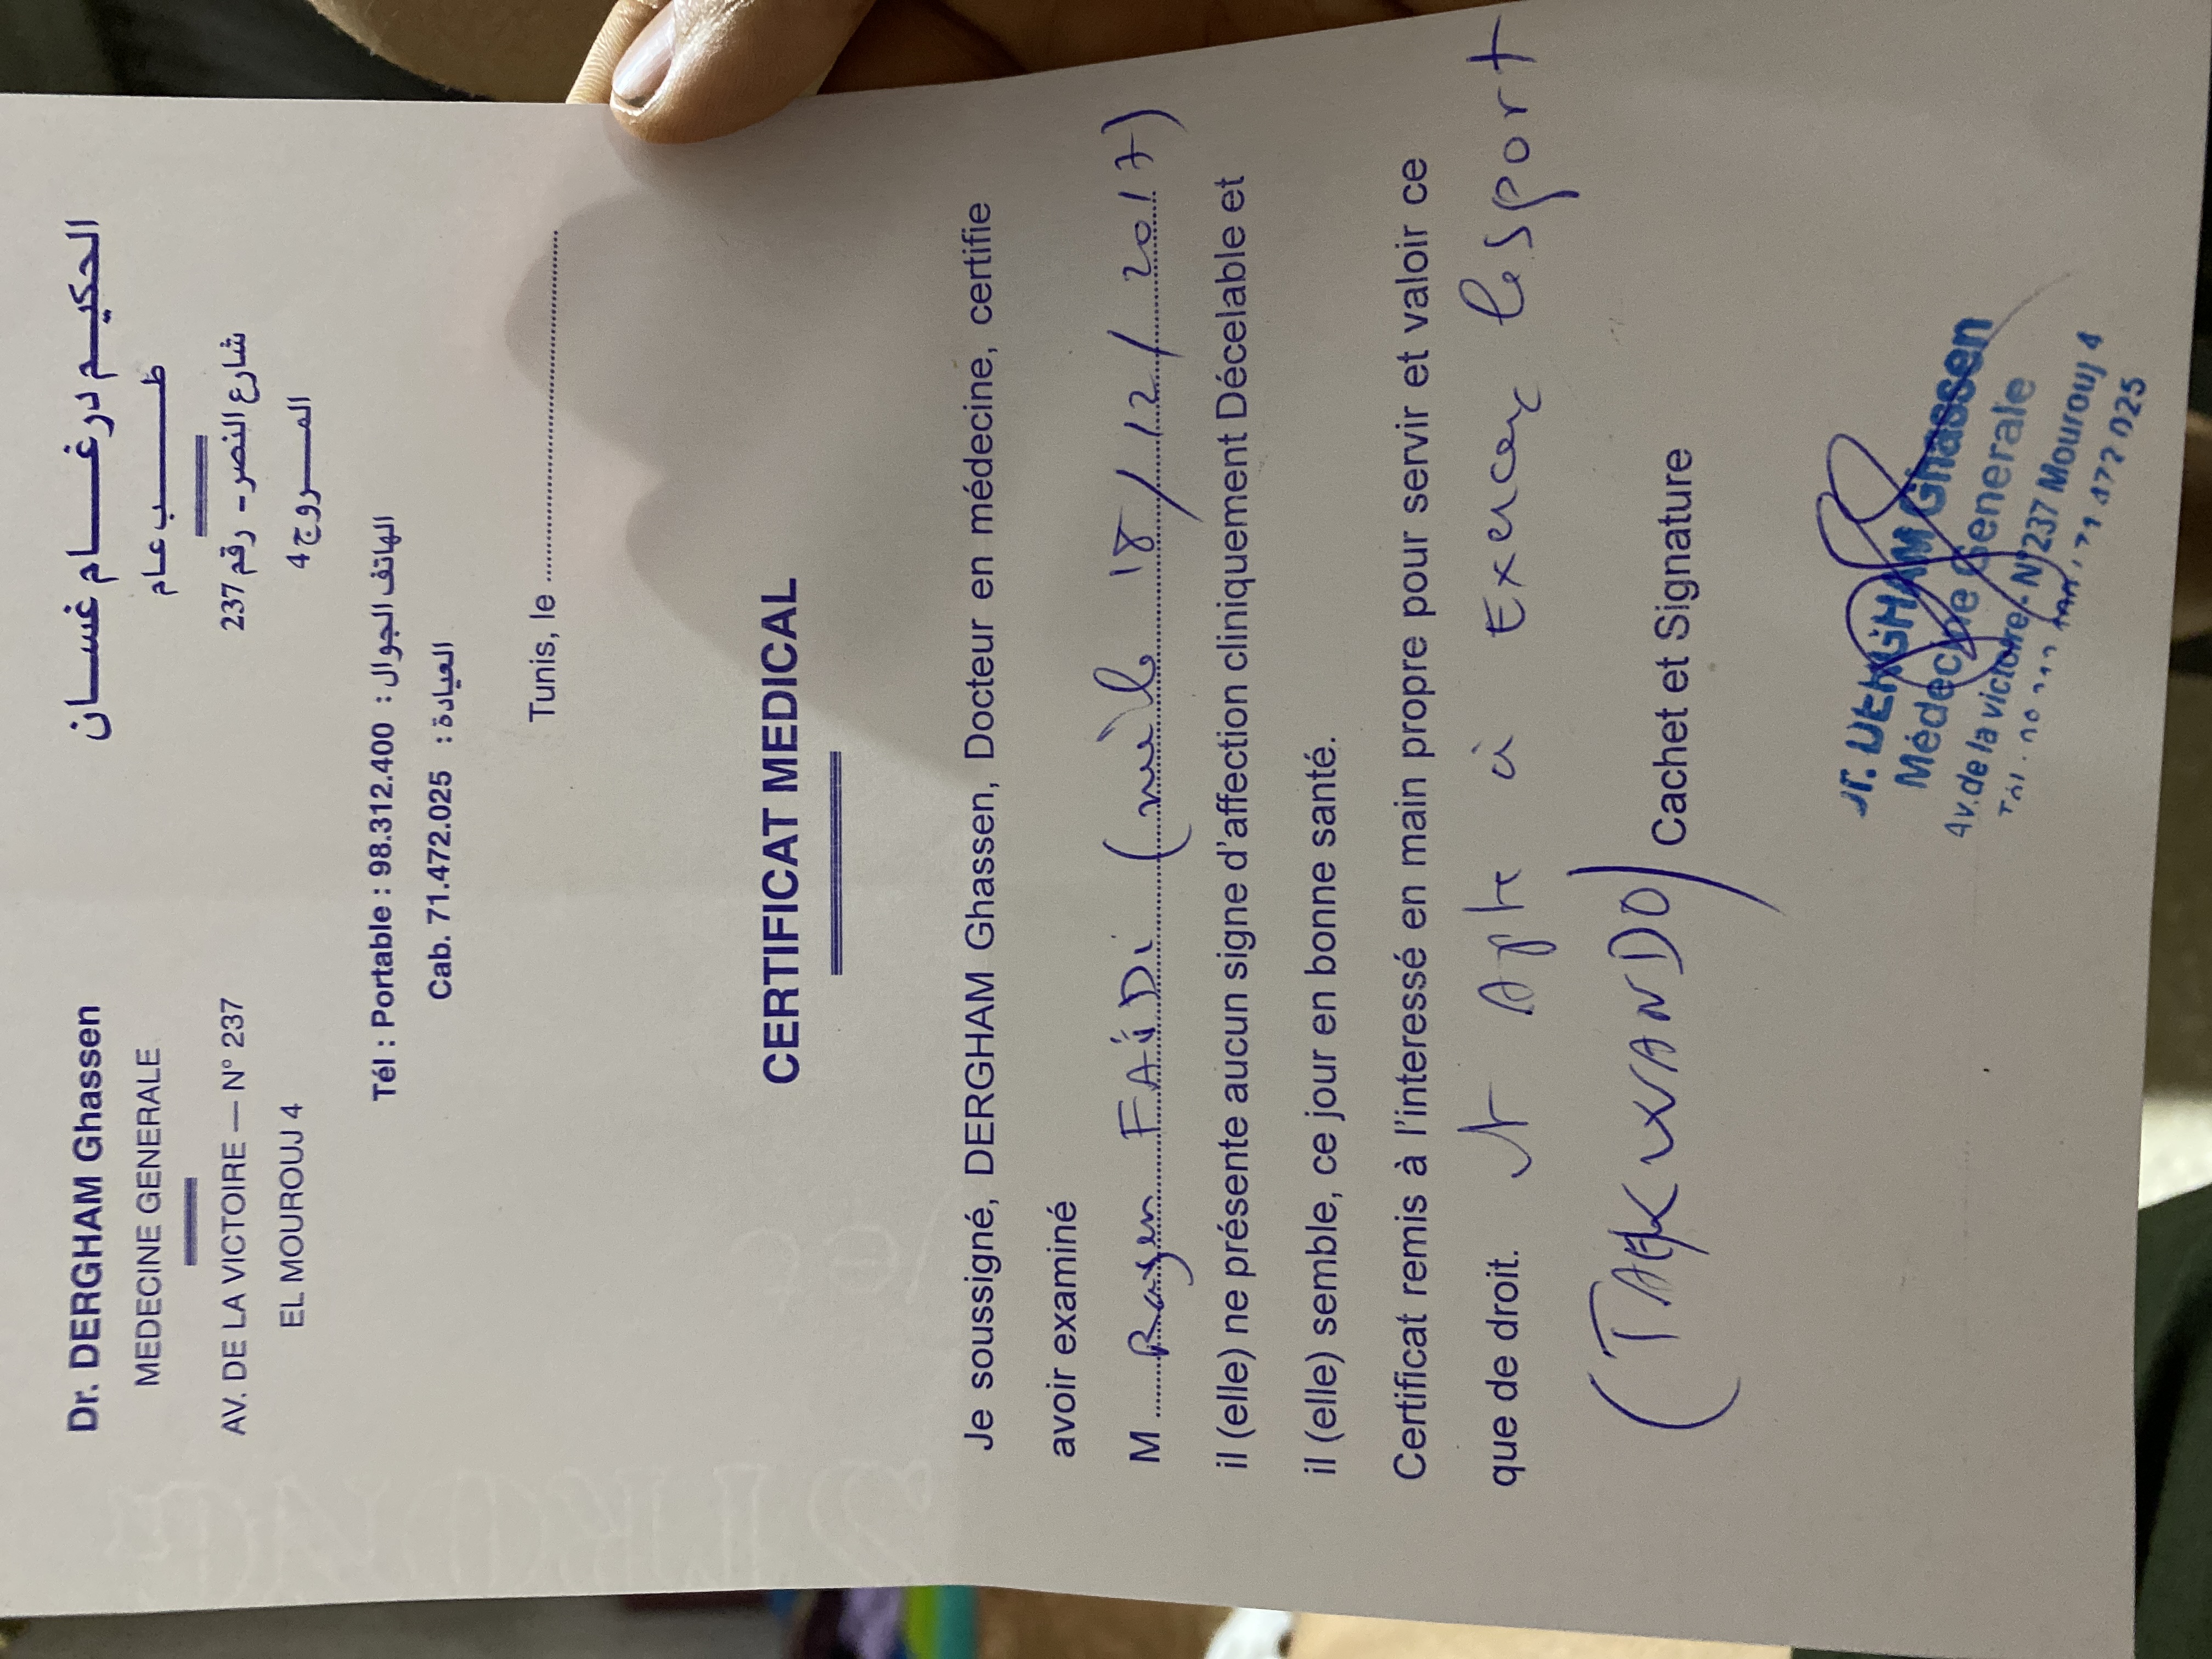 Dr. DERGHAM Ghassen
MEDECINE GENERALE
AV. DE LA VICTOIRE — N° 237
EL MOUROUJ 4
الحكيم درغام غسان
طب عام
شارع النصر - رقم 237
المروج 4
Tél : Portable : 98.312.400 : الهاتف الجوال
Cab. 71.472.025 : العيادة
Tunis, le
CERTIFICAT MEDICAL
Je soussigné, DERGHAM Ghassen, Docteur en médecine, certifie
avoir examiné
M Rayen FAIDI ( 18/12/2017)
il (elle) ne présente aucun signe d'affection cliniquement Décelable et
il (elle) semble, ce jour en bonne santé.
Certificat remis à l'interessé en main propre pour servir et valoir ce
que de droit. Apte à Exercer le sport
(TAEKWANDO)
Cachet et Signature
Dr. DERGHAM Ghassen
Médecine Generale
Av. de la victoire - N°237 Mourouj 4
71 472 025